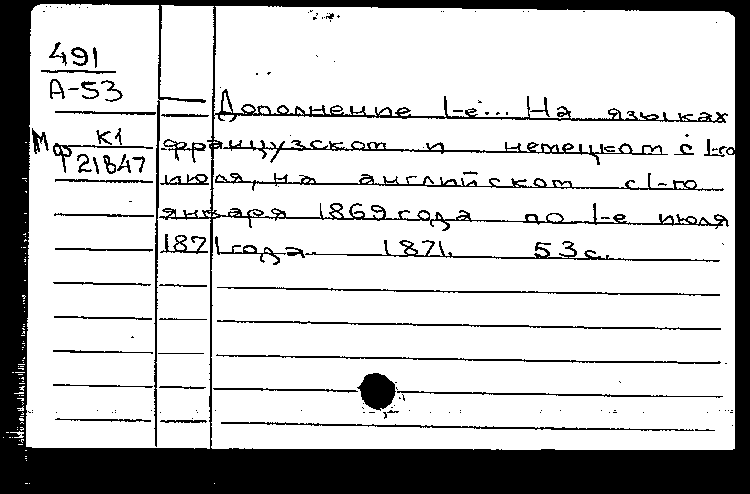 491
А-53
Дополнение 1-е... На языках
Мф К1 французском и немецком с 1-го
21847
июля, на английском с 1-го
января 1869 года по 1-е июля
1871 года. 1871. 53 с.